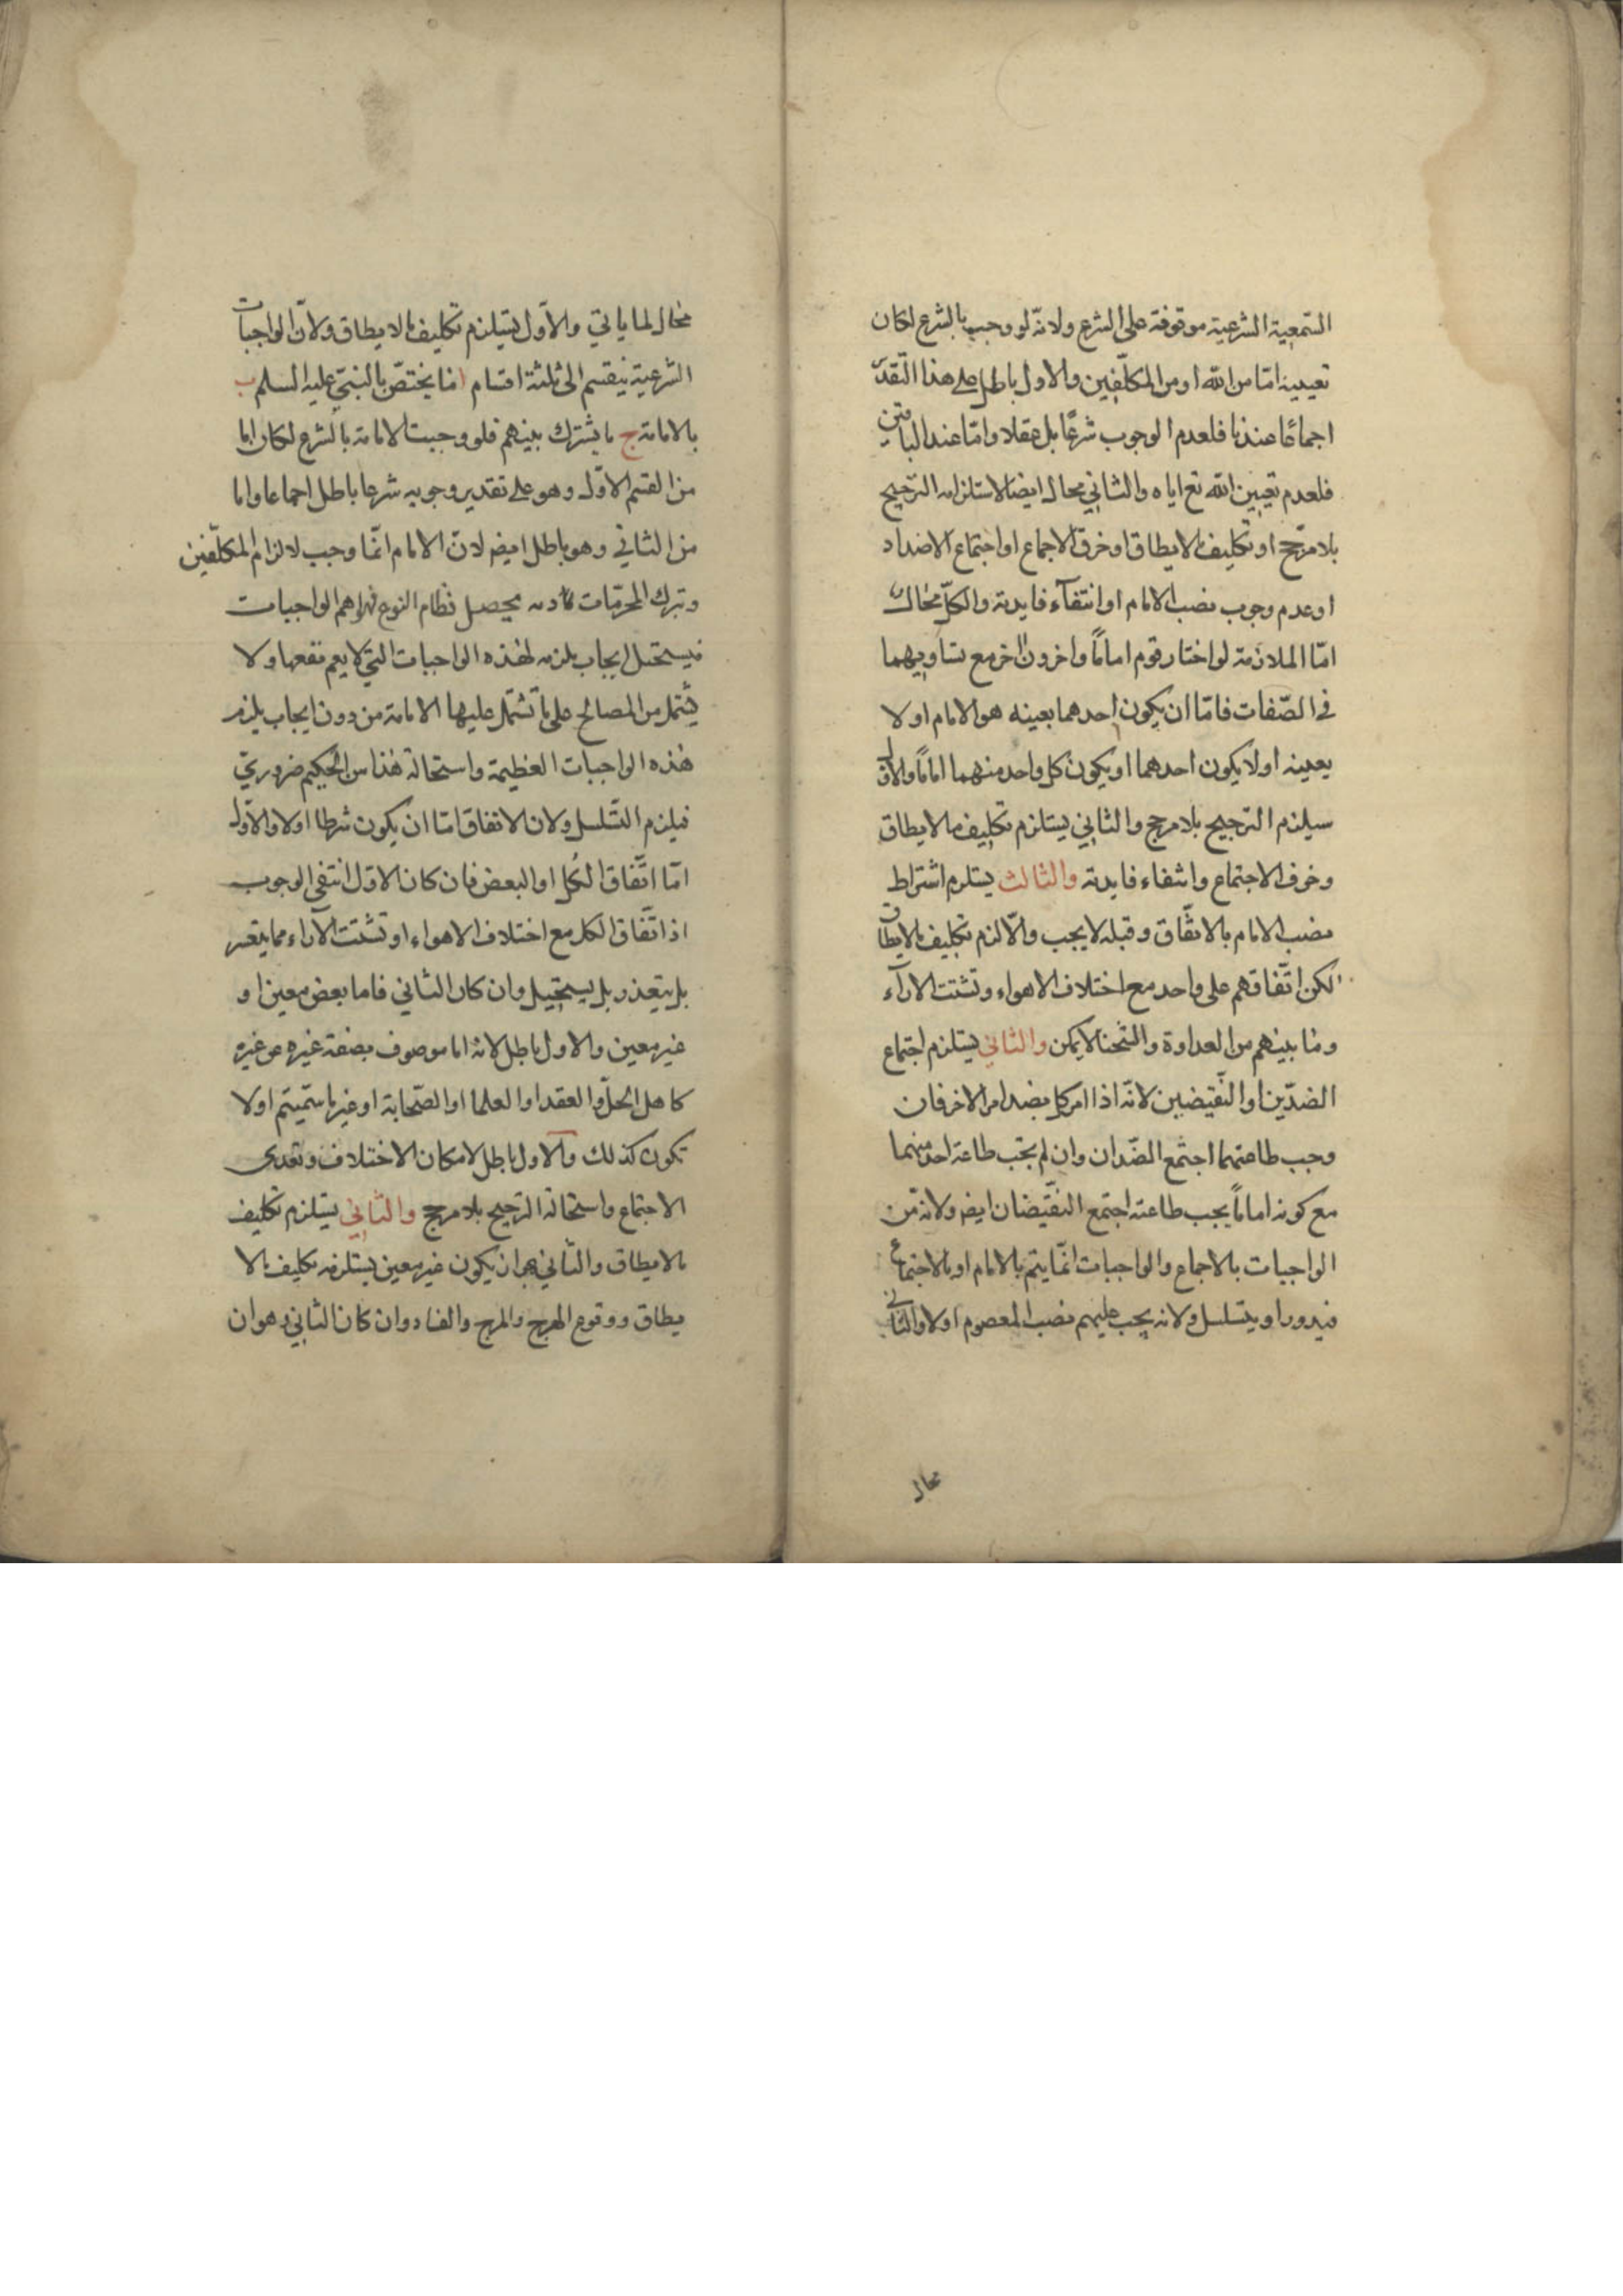 السّمعية الشرعية موقوفة على الشرع ولانّه لو وجب بالشرع لكان
تعيينه امّا من الله او من المكلّفين والاول باطل على هذا التّقدير
اجماعًا عندنا فلعدم الوجوب شرعًا بل عقلا وامّا عند الباقين
فلعدم تعيين الله تع اياه والثاني محال ايضا لاستلزامه الترجيح
بلا مرجّح او تكليف ما لا يطاق او خرق الاجماع او اجتماع الاضداد
او عدم وجوب نصب الامام او انتفآء فايدته والكلّ محال
امّا الملازمة لو اختار قوم امامًا واخرون اخر مع تساويهما
في الصّفات فامّا ان يكون احدهما بعينه هو الامام او لا
بعينه او لا يكون احدهما او يكون كل واحد منهما امامًا والاول
سيلزم الترجيح بلا مرجح والثاني يستلزم تكليف ما لا يطاق
وخرق الاجتماع وانتفاء فايدته والثالث يستلزم اشتراط
نصب الامام بالاتفّاق وقبله لا يجب والّا لزم تكليف ما لا يطاق
لكن اتّفاقهم على واحد مع اختلاف الاهواء وتشتت الارآء
وما بينهم من العداوة والشحنا لا يمكن والثاني يستلزم اجتماع
الضدّين او النّقيضين لانّه اذا امر كل بضد امر الاخر فان
وجب طاعتهما اجتمع الضّدان وان لم يجب طاعة احد منهما
مع كونه امامًا يجب طاعته اجتمع النقّيضان ايضا ولانّه من
الواجبات بالاجماع والواجبات انّما يتم بالامام او بالاجتماع
فيدور او يتسلسل ولانه يجب عليهم نصب المعصوم اولا والثاني
محال
محال لما ياتي والاوّل يستلزم تكليف ما لا يطاق ولانّ الواجبات
الشرعية ينقسم الى ثلثة اقسام ا ما يختصّ بالنبيّ عليه السلم ب
بالامامة ج ما يشترك بينهم فلو وجبت الامامة بالشرع لكان اما
من القسم الاوّل وهو على تقدير وجوبه شرعا باطل اجماعا واما
من الثاني وهو باطل ايضا لانّ الامام انّما وجب لالزام المكلّفين
وترك المحرّمات يحصل نظام النوع فهو اهم الواجبات
فيستحيل ايجاب لهذه الواجبات التي لا يعم نفعها ولا
يشتمل من المصالح على ما تشتمل عليها الامامة من دون ايجاب
هذه الواجبات العظيمة واستحالة هذا من الحكيم ضروريّ
فيلزم التّسلسل ولان الاتفاق امّا ان يكون شرطا او لا والاوّل
امّا اتّفاق الكُل او البعض فان كان الاول انتفى الوجوب
اذ اتّفاق الكل مع اختلاف الاهواء او تشتت الآراء مما يتعسر
بل يتعذر بل يستحيل وان كان الثاني فاما بعض معين او
غير معين والاول باطل لانه اما موصوف بصفة غيره عن غيره
كاهل الحلّ والعقد او العلما او الصّحابة او غير ما سمّيتم او لا
تكون كذلك والاول باطل لامكان الاختلاف وتعدى
الاجتماع واستحالة الترجيح بلا مرجح والثاني يستلزم تكليف
ما لا يطاق والثّاني هو ان يكون غير معين يستلزم تكليف ما لا
يطاق ووقوع الهرج والمرج والفساد وان كان الثاني وهو ان